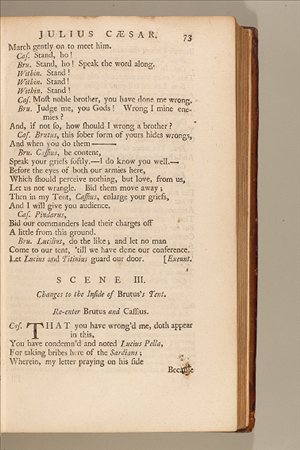 JULIUS CÆSAR. 73
March gently on to meet him.
Caſ. Stand, ho!
Bru. Stand, ho! Speak the word along.
Within. Stand!
Within. Stand!
Within. Stand!
Caſ. Moſt noble brother, you have done me wrong.
Bru. Judge me, you Gods! Wrong I mine ene-
mies?
And, if not ſo, how ſhould I wrong a brother?
Caſ. Brutus, this ſober form of yours hides wrongs,
And when you do them———
Bru. Caſſius, be content,
Speak your griefs ſoftly.—I do know you well.—
Before the eyes of both our armies here,
Which ſhould perceive nothing, but love, from us,
Let us not wrangle. Bid them move away;
Then in my Tent, Caſſius, enlarge your griefs,
And I will give you audience.
Caſ. Pindarus,
Bid our commanders lead their charges off
A little from this ground.
Bru. Lucilius, do the like; and let no man
Come to our tent, 'till we have done our conference.
Let Lucius and Titinius guard our door. [Exeunt.
SCENE III.
Changes to the Inſide of Brutus's Tent.
Re-enter Brutus and Caſſius.
Caſ. THAT you have wrong'd me, doth appear
in this,
You have condemn'd and noted Lucius Pella,
For taking bribes here of the Sardians;
Wherein, my letter praying on his ſide
Becauſe